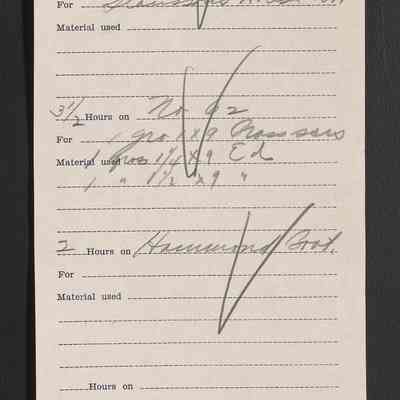 For
Material used
3 1/2 Hours on No 62
For 1 gro 1 x 9
Material used 1 Gros 1 1/4 x 9 Ed
1 " 1 1/2 x 9 "
2 Hours on Hammond
For
Material used
Hours on